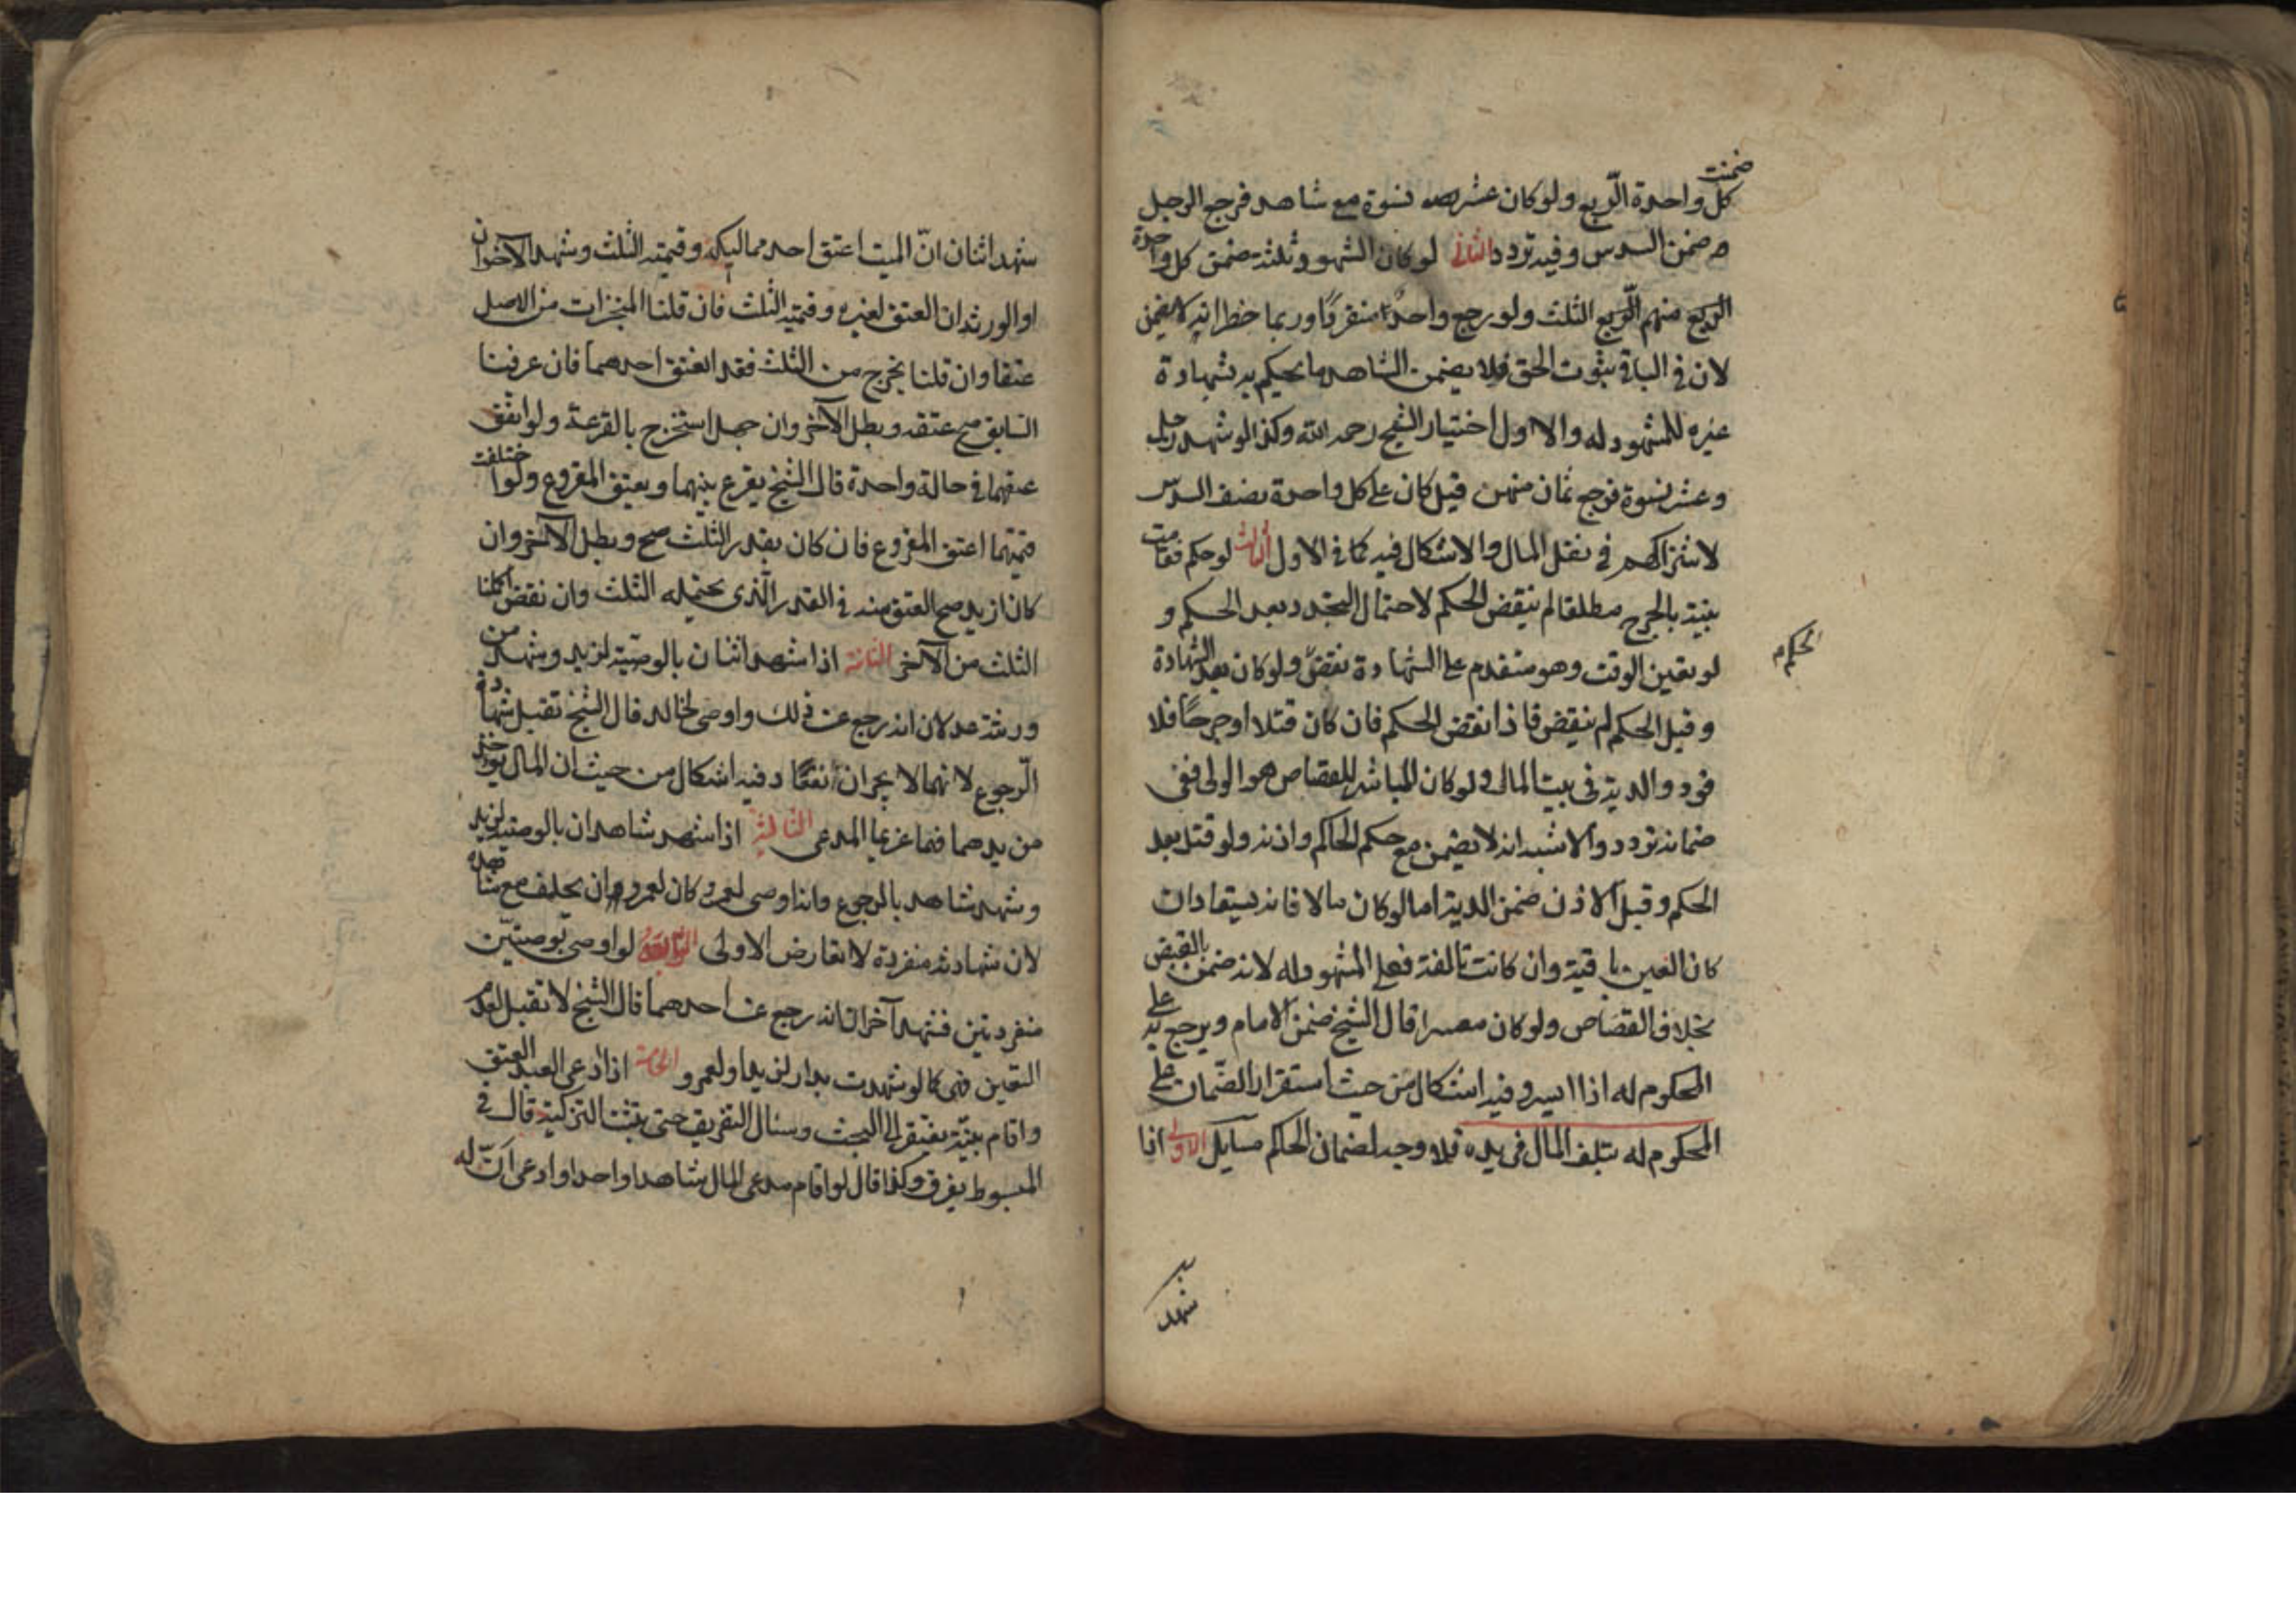 ضمنت
كل واحدة الربع ولو كان عشر نسوة مع شاهد فرجع الرجل
ضمن السدس وفيه تردد الثاني لو كان الشهود ثلثة ضمن كل واحدة
الربع منهم الربع الثلث ولو رجع واحد منفردا وربما خطر انه لا يضمن
لان في الباقي ثبوت الحق فلا يضمن الشاهد ما يحكم به بشهادة
غيره للمشهود له والاول اختيار الشيخ رحمه الله وكذا لو شهد رجل
وعشر نسوة فرجع ثمان منهن قيل كان على كل واحدة نصف السدس
لاشتراكهم في نقل المال والاشكال فيه كما في الاول الثالث لو حكم فقامت
بينة بالجرح مطلقا لم ينقض الحكم لاحتمال التجدد بعد الحكم و
لو تعين الوقت وهو متقدم على الشهادة نقض ولو كان بعد الشهادة
الحكم
وقبل الحكم لم ينقض فاذا نقض الحكم فان كان قتلا او جرحا فلا
قود والدية في بيت المال ولو كان المباشر للقصاص هو الولي ففي
ضمانه تردد والاشبه انه لا يضمن مع حكم الحاكم واذنه ولو قتل بعد
الحكم وقبل الاذن ضمن الدية اما لو كان مالا فانه يستعاد ان
كان العين باقية وان كانت تالفة فعلى المشهود له لانه ضمن بالقبض
بخلاف القصاص ولو كان معسرا قال الشيخ ضمن الامام ويرجع به على
المحكوم له اذا ايسر وفيه اشكال من حيث استقرار الضمان على
المحكوم له بتلف المال في يده فلا وجه لضمان الحاكم مسايل الاولى اذا
شهد
شهد اثنان ان الميت اعتق احد مماليكه وقيمته الثلث وشهد الآخران
او الورثة ان العتق لغيره وقيمته الثلث فان قلنا المنجزات من الاصل
عتقا وان قلنا يخرج من الثلث فقد انعتق احدهما فان عرفنا
السابق صح عتقه وبطل الآخر وان جهل استخرج بالقرعة ولو اتفق
عتقهما في حالة واحدة قال الشيخ يقرع بينهما ويعتق المقروع ولو اختلفت
قيمتهما اعتق المقروع فان كان بقدر الثلث صح وبطل الآخر وان
كان ازيد صح العتق منه في القدر الذي يحتمله الثلث وان نقض اكملنا
الثلث من الآخر الثانية اذا شهد اثنان بالوصية لزيد وشهد من
ورثته عدلان انه رجع عن ذلك واوصى لخالد قال الشيخ تقبل شهادة
الرجوع لانهما لا يجران نفعا وفيه اشكال من حيث ان المال يؤخذ
من يدهما فهما غريما المدعي الثالثة اذا شهد شاهدان بالوصية لزيد
وشهد شاهد بالرجوع وانه اوصى لعمرو كان لعمرو ان يحلف مع شاهده
لان شهادته منفردة لا تعارض الاولى الرابعة لو اوصى بوصيتين
منفردتين فشهد آخران انه رجع عن احدهما قال الشيخ لا تقبل لعدم
التعيين فهي كما لو شهدت بدار لزيد او لعمرو الخامسة اذا ادعى العبد العتق
واقام بينة يفتقر الى البحث وسئال التفريق حتى يثبت التزكية قال في
المبسوط يفرق وكذا قال لو اقام مدعي المال شاهدا واحدا وادعى ان له